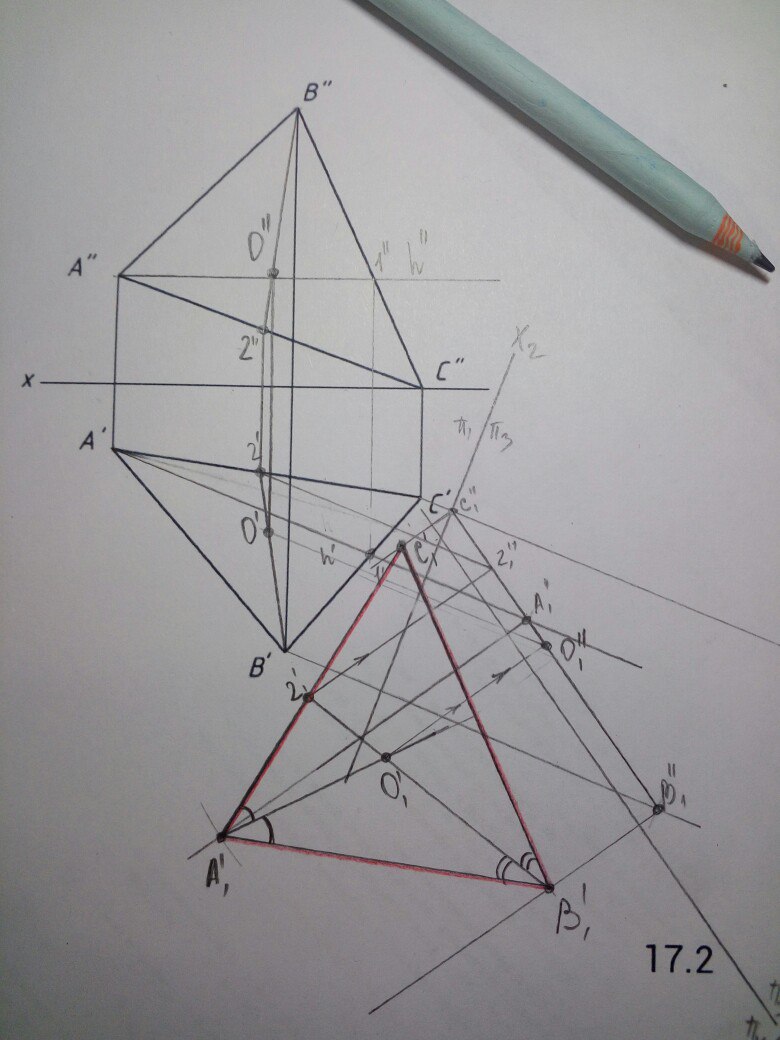 B"
O"
A"
1"
h"
2"
C"
x
X₂
π₁
π₃
A'
2'
C'
C₁"
O'
h'
1'
C₁'
2₁"
A₁"
O₁"
B'
2₁'
B₁"
O₁'
A₁'
B₁'
17.2